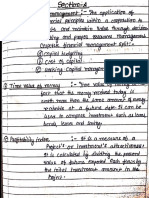 Section-A
management :- The application of
financial principles within a corporation to
and maintain value through decision
making and proper resource management
Corporate financial management split:-
Capital budgeting
Cost of capital
Working Capital management
Time value of money :-
that the money received today is
worth more than the same amount of money
at a future date.
complex investment such as loans,
bonds, leases and savings.
Profitability index :- It is a measure of a
Project's or investment's attractiveness.
It is calculated by dividing the present
value of future expected cash flows by the
initial investment amount in the
Project.